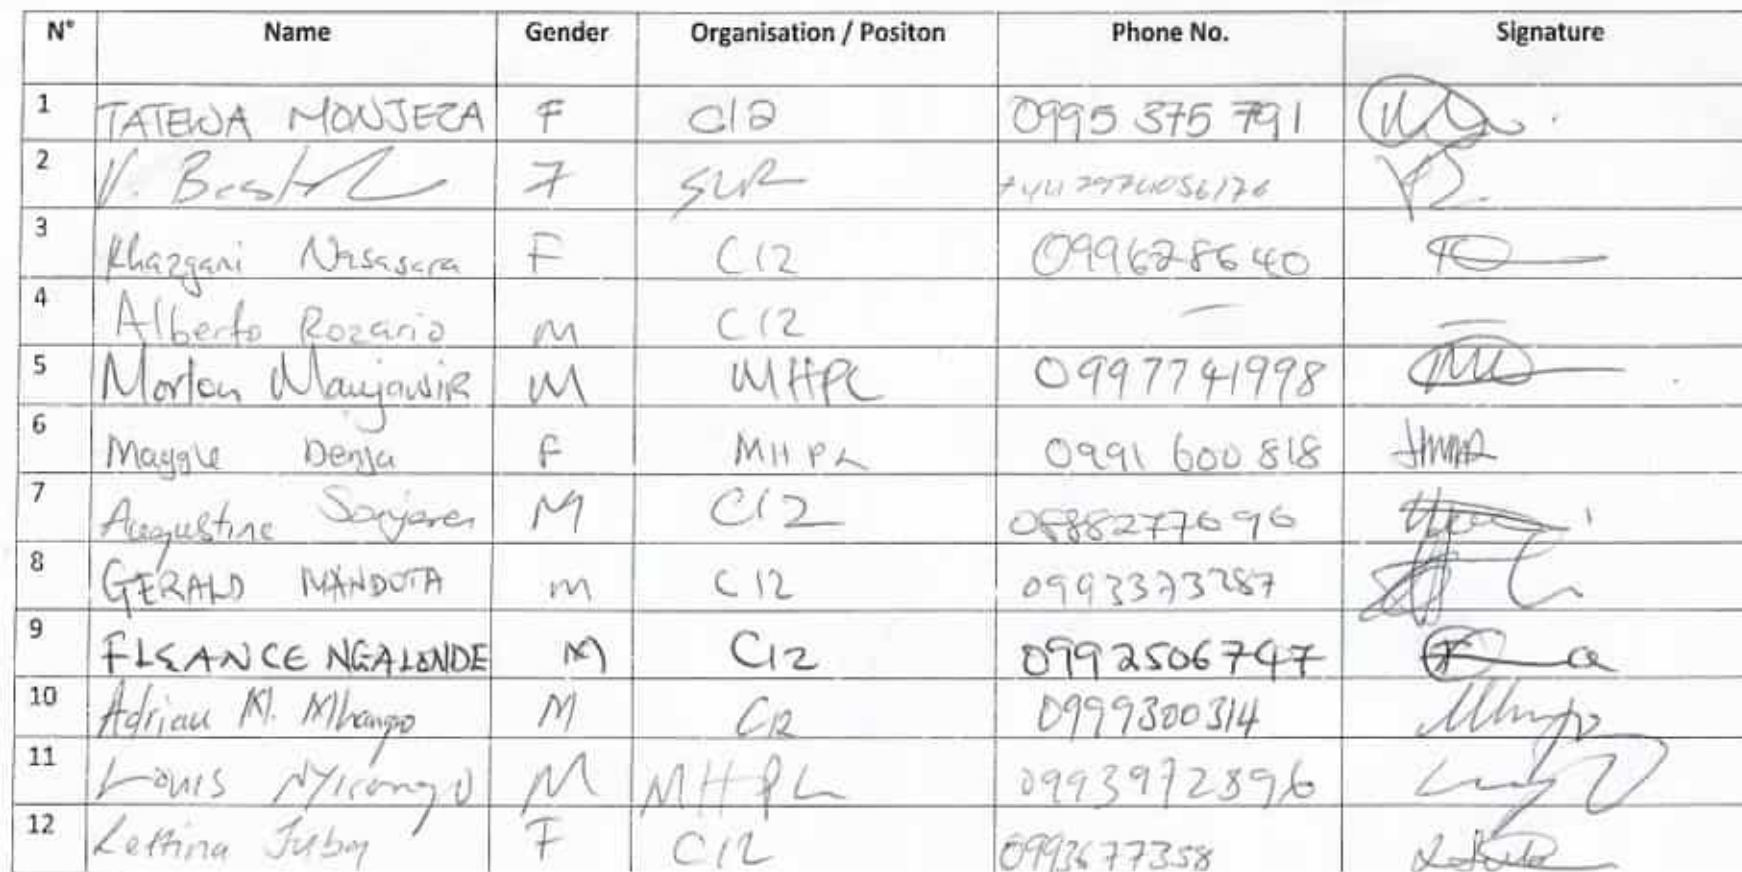 N° Name Gender Organisation / Positon Phone No. Signature
1 TATEWA MONJEZA F C12 0995 375 791
2 V. F SLR
3 Khazgani Nasasara F C12 0996286640
4 Alberto Rozario M C12 —
5 Morton M MHPL 0997741998
6 Maggie Denja F MHPL 0991 600 818
7 Augustine M C12 0888277696
8 GERALD MANDUTA M C12 0993373287
9 FLEANCE NGALONDE M C12 0992506747
10 Adrian M. Mhango M C12 0999300314
11 Louis M MHPL 0993972896
12 Lettina F C12 0993677358